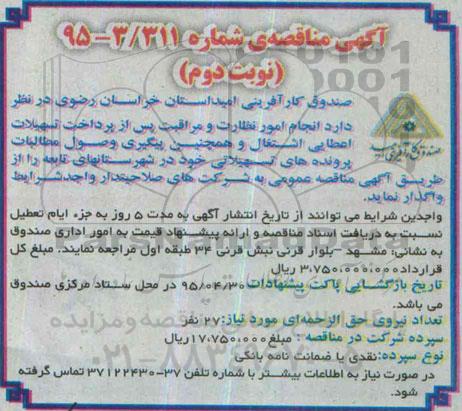 آگهی مناقصه‌ی شماره ۳/۳۱۱-۹۵
(نوبت دوم)
صندوق کارآفرینی امید استان خراسان رضوی در نظر
دارد انجام امور نظارت و مراقبت پس از پرداخت تسهیلات
اعطایی اشتغال و همچنین پیگیری وصول مطالبات
پرونده های تسهیلاتی خود در شهرستانهای تابعه را از
طریق آگهی مناقصه عمومی به شرکت های صلاحیتدار واجد شرایط
واگذار نماید.
صندوق کارآفرینی امید
واجدین شرایط می توانند از تاریخ انتشار آگهی به مدت ۵ روز به جزء ایام تعطیل
نسبت به دریافت اسناد مناقصه و ارائه پیشنهاد قیمت به امور اداری صندوق
به نشانی: مشهد -بلوار قرنی نبش قرنی ۳۴ طبقه اول مراجعه نمایند. مبلغ کل
قرارداد ۳،۷۵۰،۰۰۰،۰۰۰ ریال
تاریخ بازگشایی پاکت پیشنهادات ۹۵/۰۴/۳۰ در محل ستاد مرکزی صندوق
می باشد.
تعداد نیروی حق الزحمه‌ای مورد نیاز: ۲۷ نفر
سپرده شرکت در مناقصه : مبلغ ۱۷،۷۵۰،۰۰۰ ریال
نوع سپرده: نقدی یا ضمانت نامه بانکی
در صورت نیاز به اطلاعات بیشتر با شماره تلفن ۳۷-۳۷۱۲۲۴۳۰ تماس گرفته
شود.